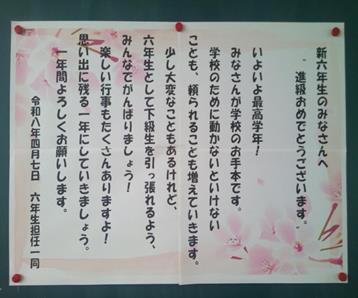 新六年生のみなさんへ
進級おめでとうございます。
いよいよ最高学年!
みなさんが学校のお手本です。
学校のために動かないといけない
ことも、頼られることも増えていきます。
少し大変なこともあるけれど、
六年生として下級生を引っ張れるよう、
みんなでがんばりましょう!
楽しい行事もたくさんありますよ!
思い出に残る一年にしていきましょう。
一年間よろしくお願いします。
令和八年四月七日 六年生担任一同